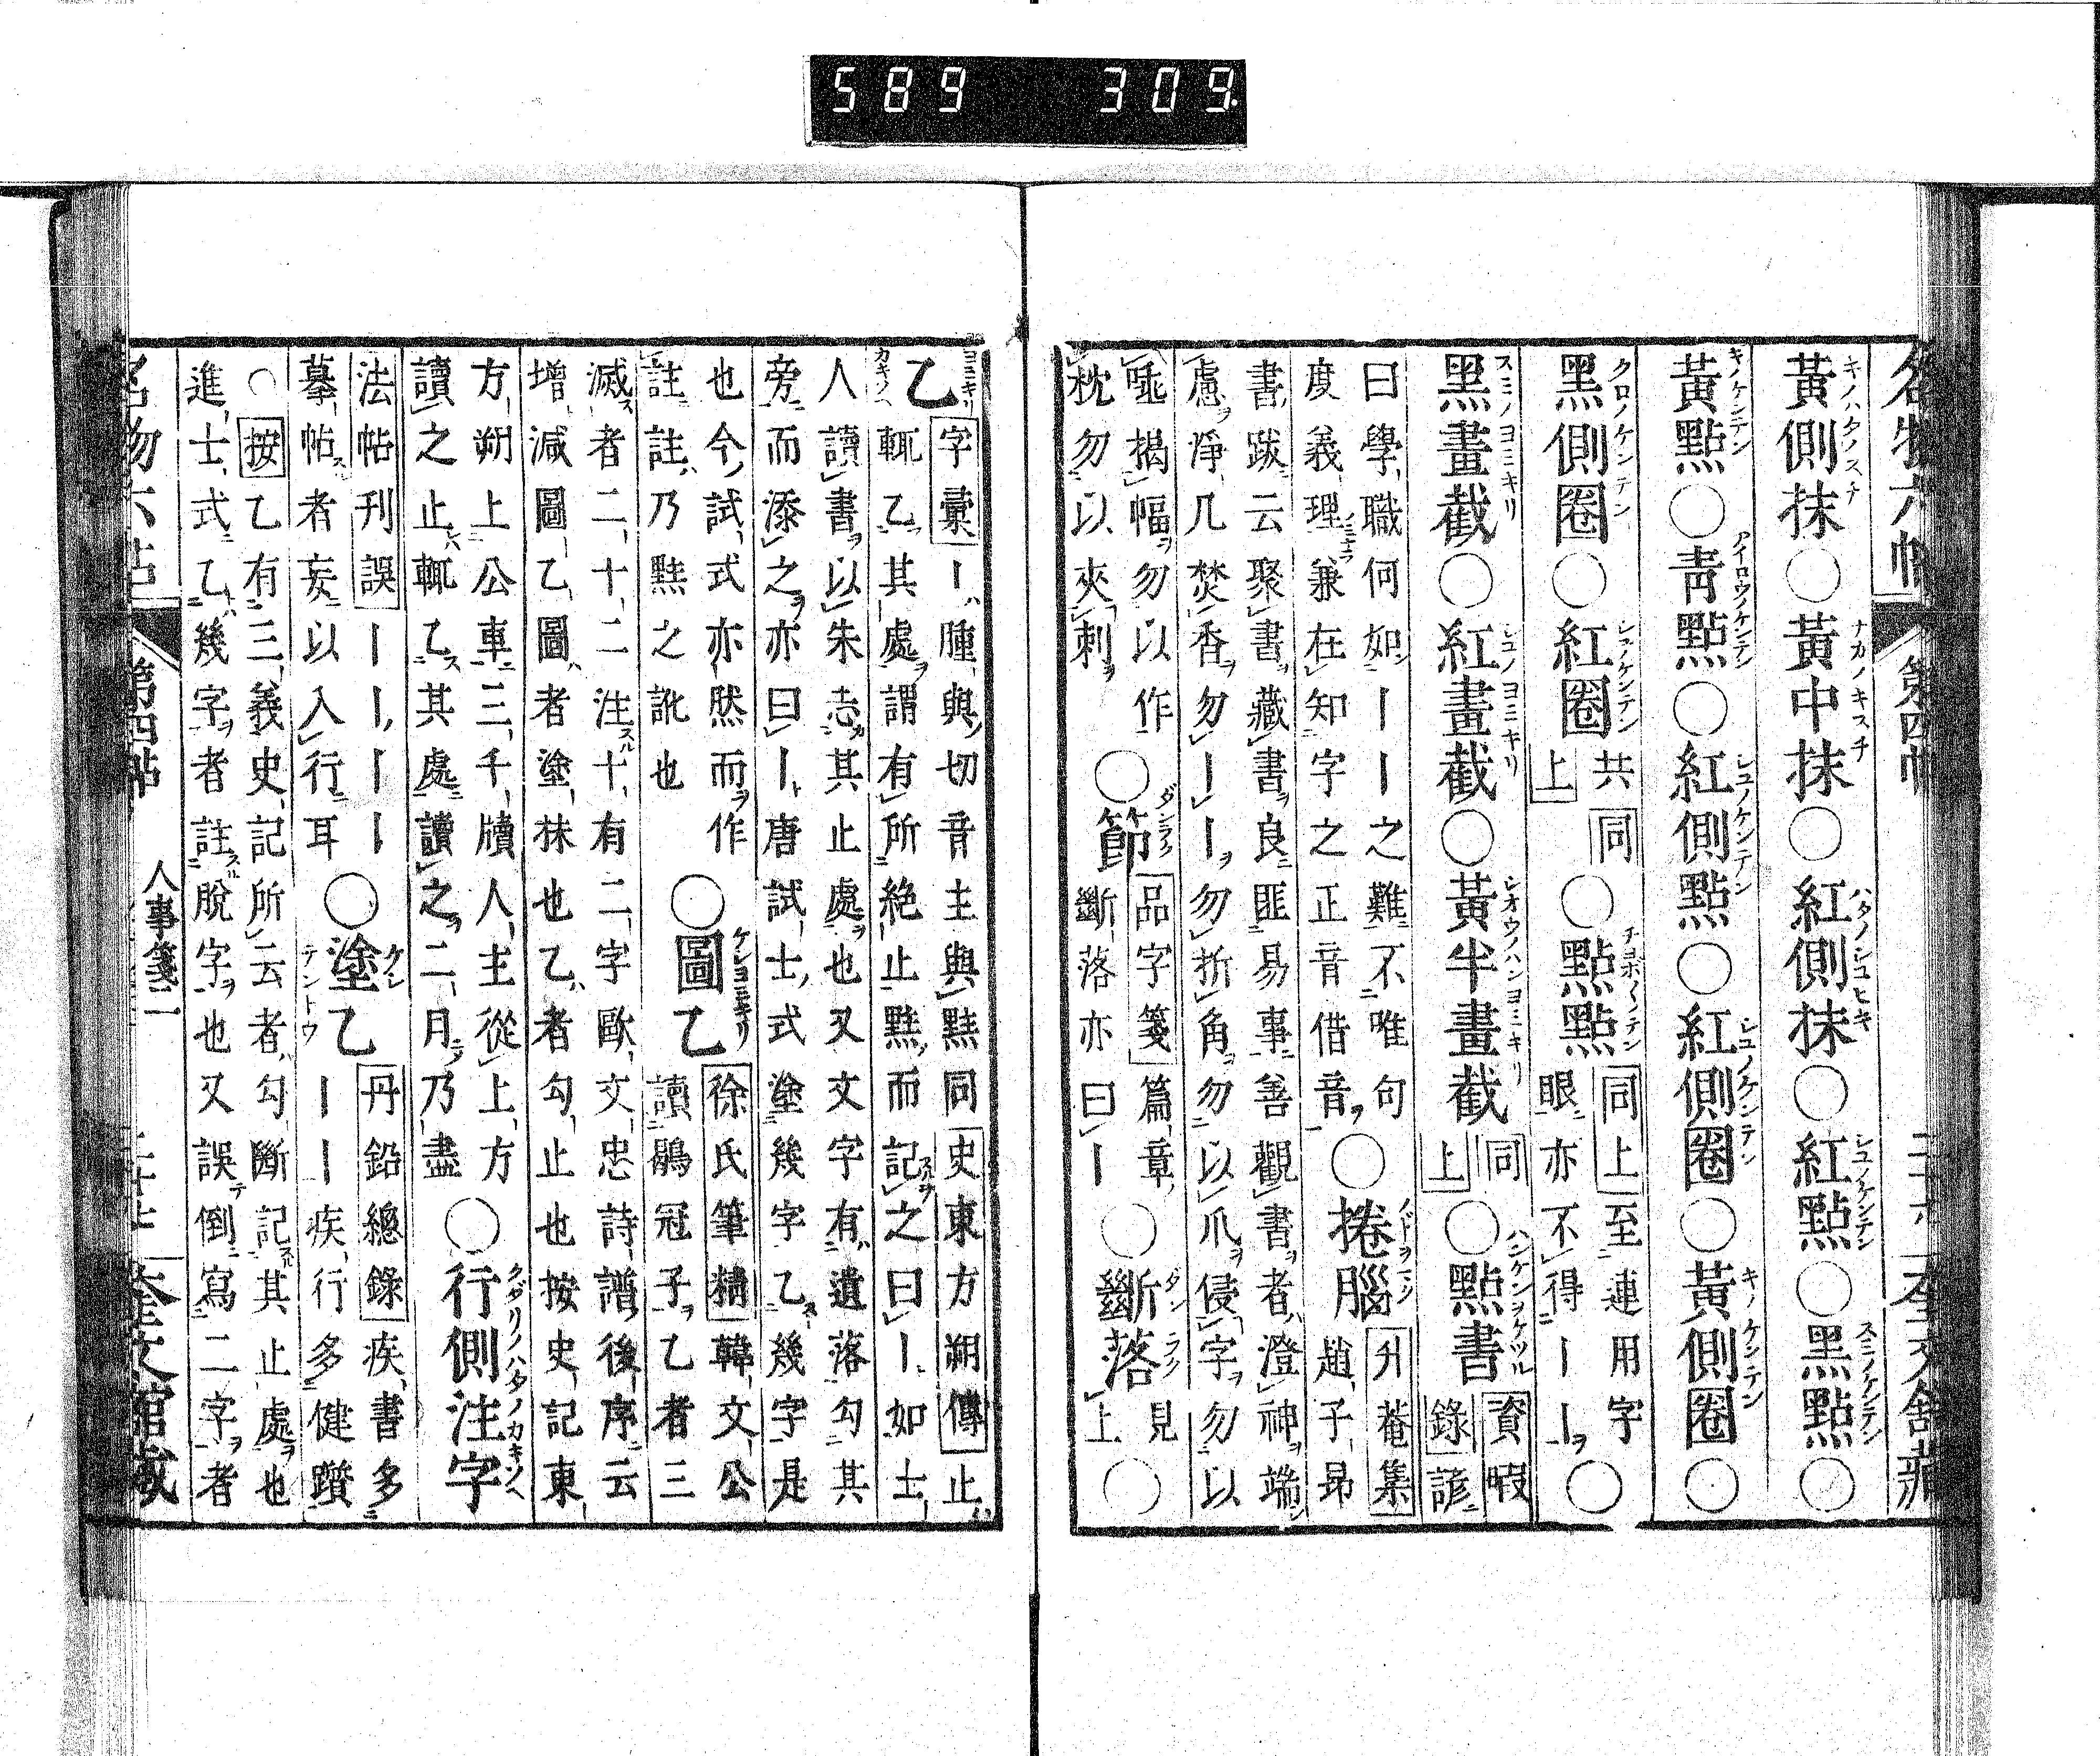 589 309.
黃側抹○黃中抹○紅側抹○紅點○黑點○
黃點○靑點○紅側點○紅側圈○黃側圈○
黑側圈○紅圈共上同○點點同上至連用字眼亦不得ーー○
黑畫截○紅畫截○黃半畫截同上○點書資暇錄諺
曰學職何如ーー之難不唯句
度義理兼在知字之正音借音○捲腦升菴集趙子昂
書跋云聚書藏書良匪易事善觀書者澄神端
慮淨几焚香勿ーー勿折角勿以爪侵字勿以
唾揭幅勿以作
枕勿以夾刺○節品字箋篇章斷落亦曰ー○斷落見上○
乙字彙ー腫與切音主與黈同史東方朔傳止
輒乙其處謂有所絕止黈而記之曰ー如士
人讀書以朱志其止處也又文字有遺落勾其
旁而添之亦曰ー唐試士式塗幾字乙幾字是
也今試式亦然而作
註註乃黈之訛也○圖乙徐氏筆精韓文公讀鶡冠子乙者三
滅者二十二注十有二字歐文忠詩譜後序云
增減圖乙圖者塗抹也乙者勾止也按史記東
方朔上公車三千牘人主從上方
讀之止輒乙其處讀之二月乃盡○行側注字
法帖刊誤ーーーー
摹帖者妄以入行耳○塗乙丹鉛總錄疾書多ーー疾行多健躓
○按乙有三義史記所云者勾斷記其止處也
進士式乙幾字者註脫字也又誤倒寫二字者
第四帖 人事箋二